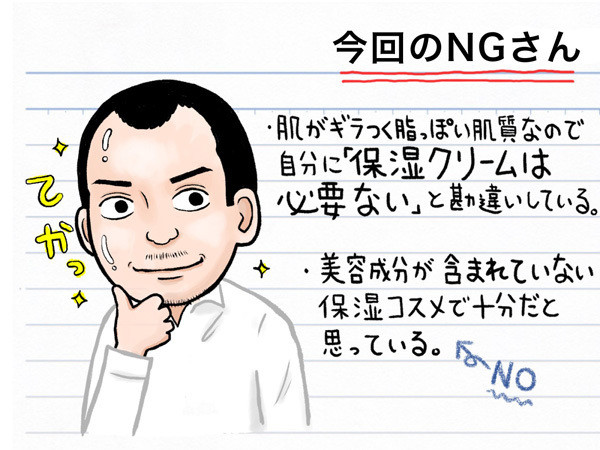 今回のNGさん
・肌がギラつく脂っぽい肌質なので
自分に「保湿クリームは
必要ない」と勘違いしている。
・美容成分が含まれていない
保湿コスメで十分だと
思っている。
NO
てかっ